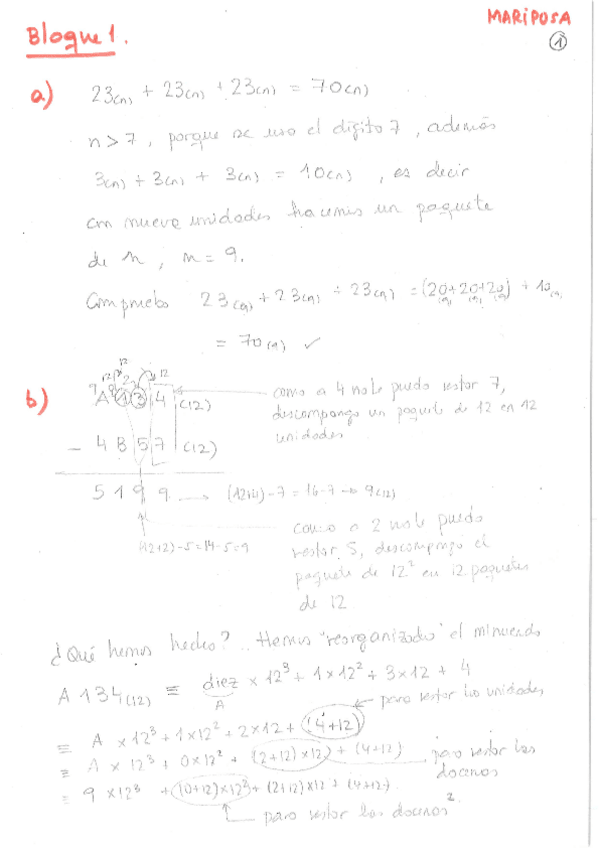 MARIPOSA
①
Bloque 1.
a) 23(n) + 23(n) + 23(n) = 70(n)
n > 7, porque se usa el dígito 7, además
3(n) + 3(n) + 3(n) = 10(n), es decir
con nueve unidades hacemos un paquete
de n, n = 9.
Compruebo 23(9) + 23(9) + 23(9) = (20(9) + 20(9) + 20(9)) + 10(9)
= 70(9) ✓
b) A 1 3 4 (12)
como a 4 no le puedo restar 7,
descompongo un paquete de 12 en 12
unidades
- 4 B 5 7 (12)
5 1 9 9 (12+4)-7 = 16-7 → 9(12)
(12+2)-5=14-5=9
como a 2 no le puedo
restar 5, descompongo el
paquete de 12² en 12 paquetes
de 12
¿Qué hemos hecho? .. Hemos "reorganizado" el minuendo
A 134(12) ≡ diez × 12³ + 1 × 12² + 3 × 12 + 4
A
para restar las unidades
≡ A × 12³ + 1 × 12² + 2 × 12 + (4+12)
≡ A × 12³ + 0 × 12² + (2+12) × 12) + (4+12)
para restar las
docenas
= 9 × 12³ + (0+12) × 12² + (2+12) × 12 + (4+12)
para restar las docenas²